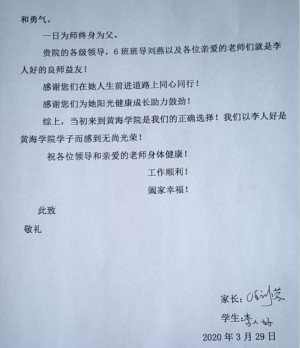 和勇气。
一日为师终身为父。
贵院的各级领导，6 班班导刘燕以及各位亲爱的老师们就是李
人好的良师益友！
感谢您们在她人生前进道路上同心同行！
感谢您们为她阳光健康成长助力鼓劲！
综上，当初来到黄海学院是我们的正确选择！我们以李人好是
黄海学院学子而感到无尚光荣！
祝各位领导和亲爱的老师身体健康！
工作顺利！
阖家幸福！
此致
敬礼
家长：
学生：李人好
2020 年 3 月 29 日